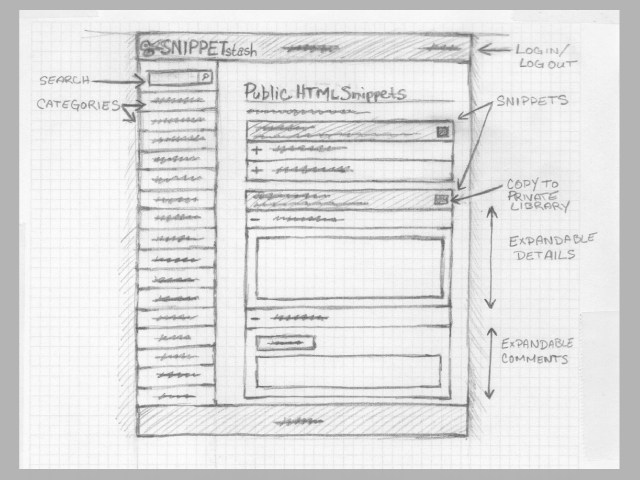 SNIPPETstash
LOGIN/
LOGOUT
SEARCH
CATEGORIES
Public HTML Snippets
SNIPPETS
COPY TO
PRIVATE
LIBRARY
EXPANDABLE
DETAILS
EXPANDABLE
COMMENTS